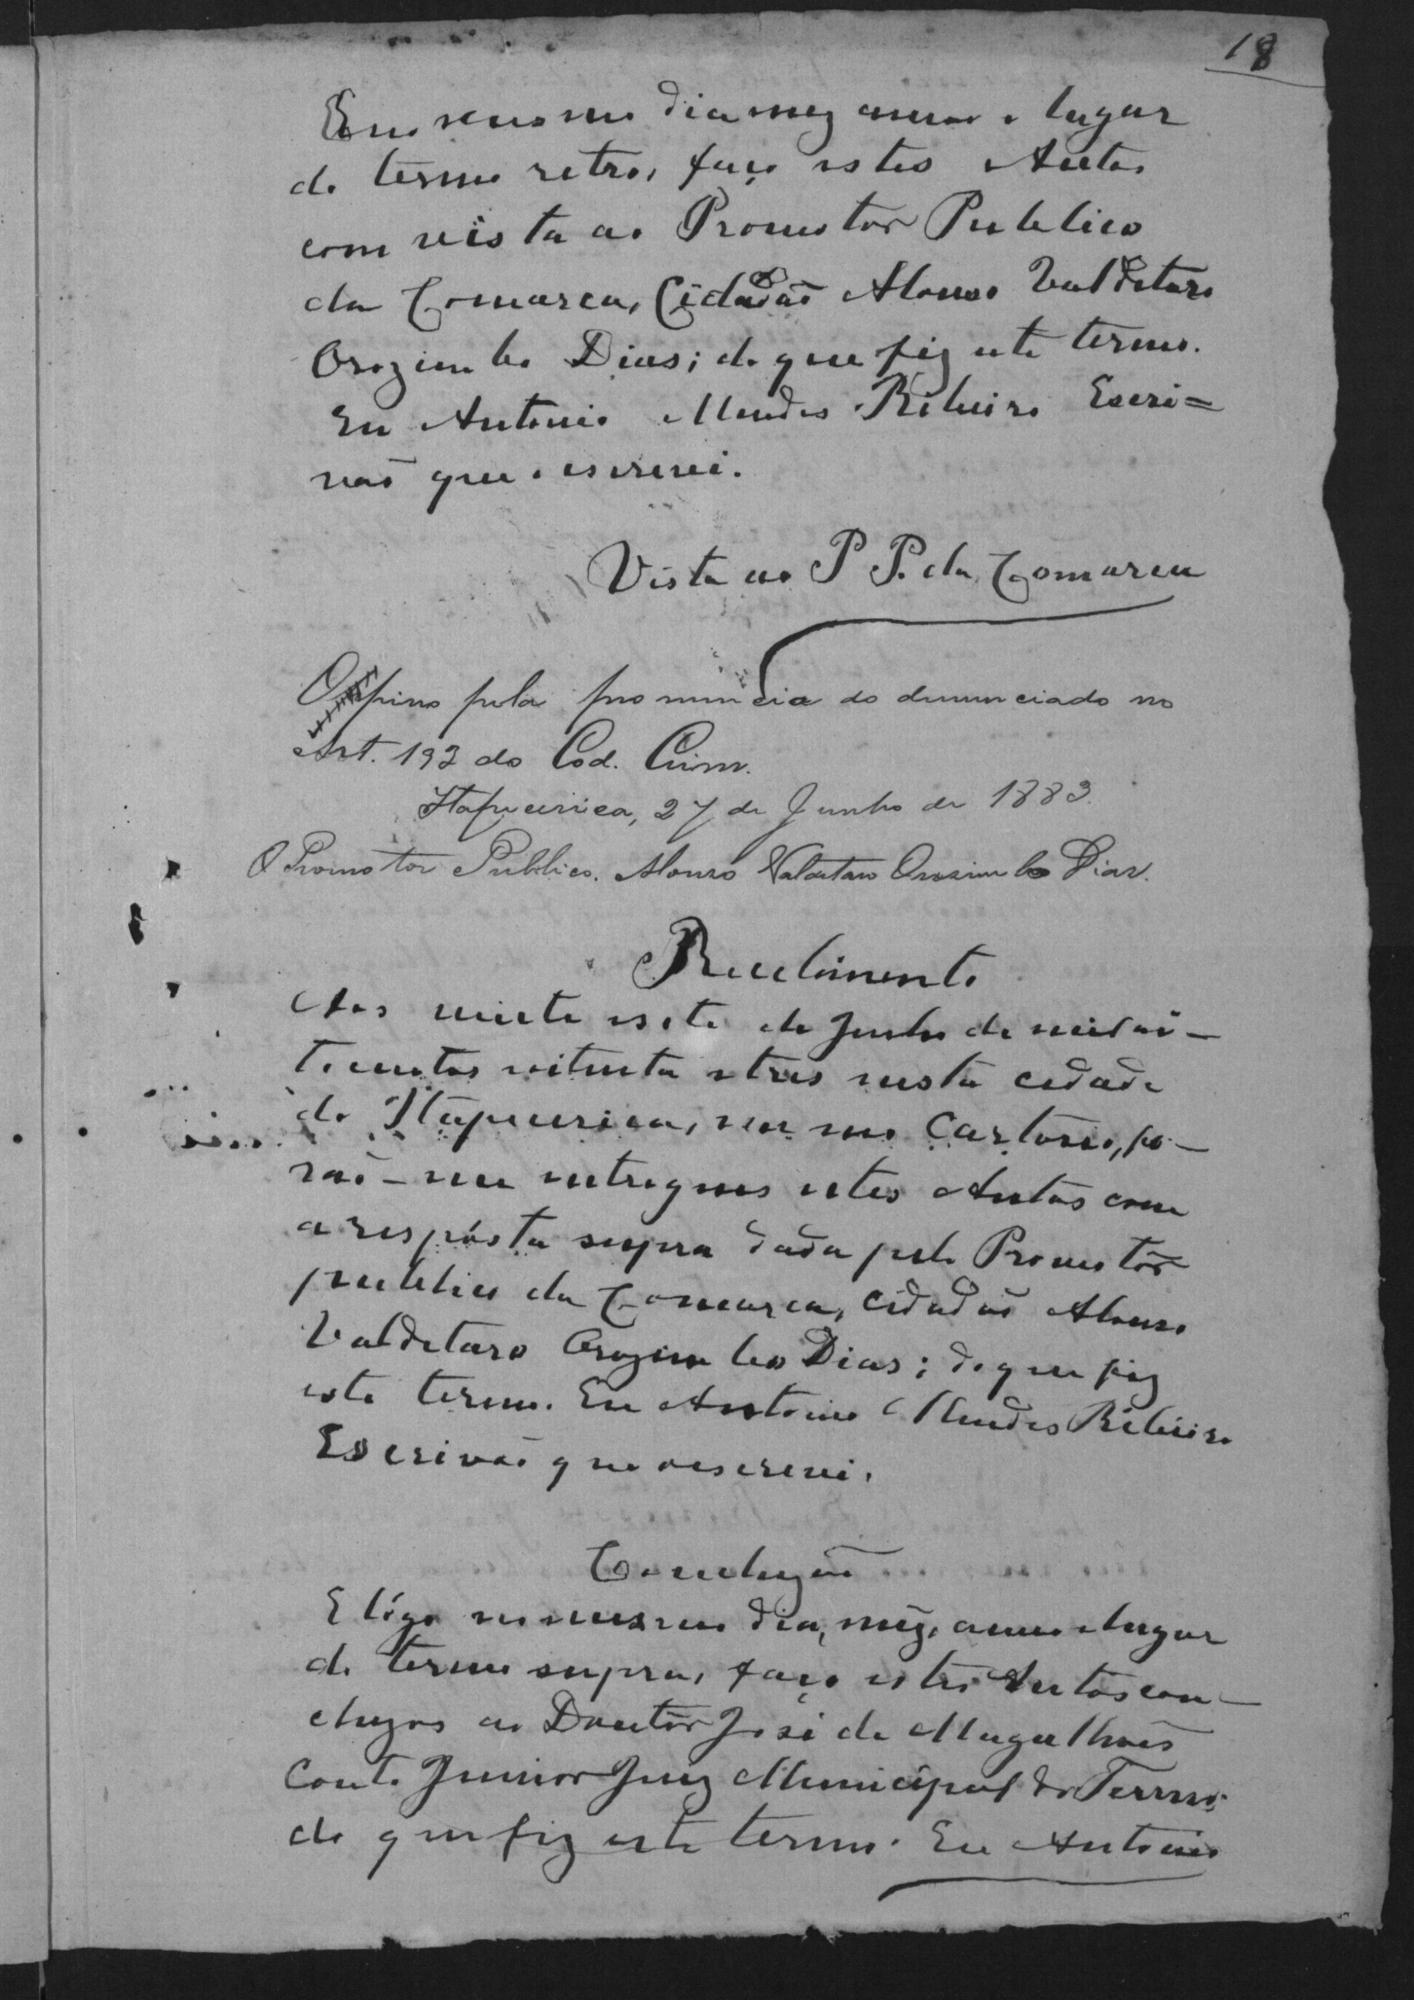 18
Em o mesmo dia mez anno e lugar
do termo retro, faço estes Autos
com vista ao Promotor Publico
da Comarca, Cidadão Alonso Valdetaro
Orozimbo Dias; do que fiz este termo.
Eu Antonio Mendes Ribeiro Escri=
vão que o escrevi.
Vista ao P P. da Comarca
Oppino pela pronuncia do denunciado no
Art. 192 do Cod. Crim.
Itapecerica, 27 de Junho de 1883.
O Promotor Publico. Alonso Valdetaro Orosimbo Dias.
Recebimento
Aos vinte e sete de Junho de mil oi-
tocentos e oitenta e tres nesta cidade
de Itapecerica, em meo Cartorio, fo-
rão-me entregues estes Autos com
a resposta supra dada pelo Promotor
publico da Comarca, cidadão Alonso
Valdetaro Orozimbo Dias; do que fiz
este termo. Eu Antonio Mendes Ribeiro
Escrivão que o escrevi.
Concluzão
E lógo no mesmo dia, mez, anno e lugar
do termo supra, faço estes Autos con-
cluzos ao Doutor José de Magalhães
Couto Junior Juiz Municipal do Termo;
do que fiz este termo. Eu Antonio